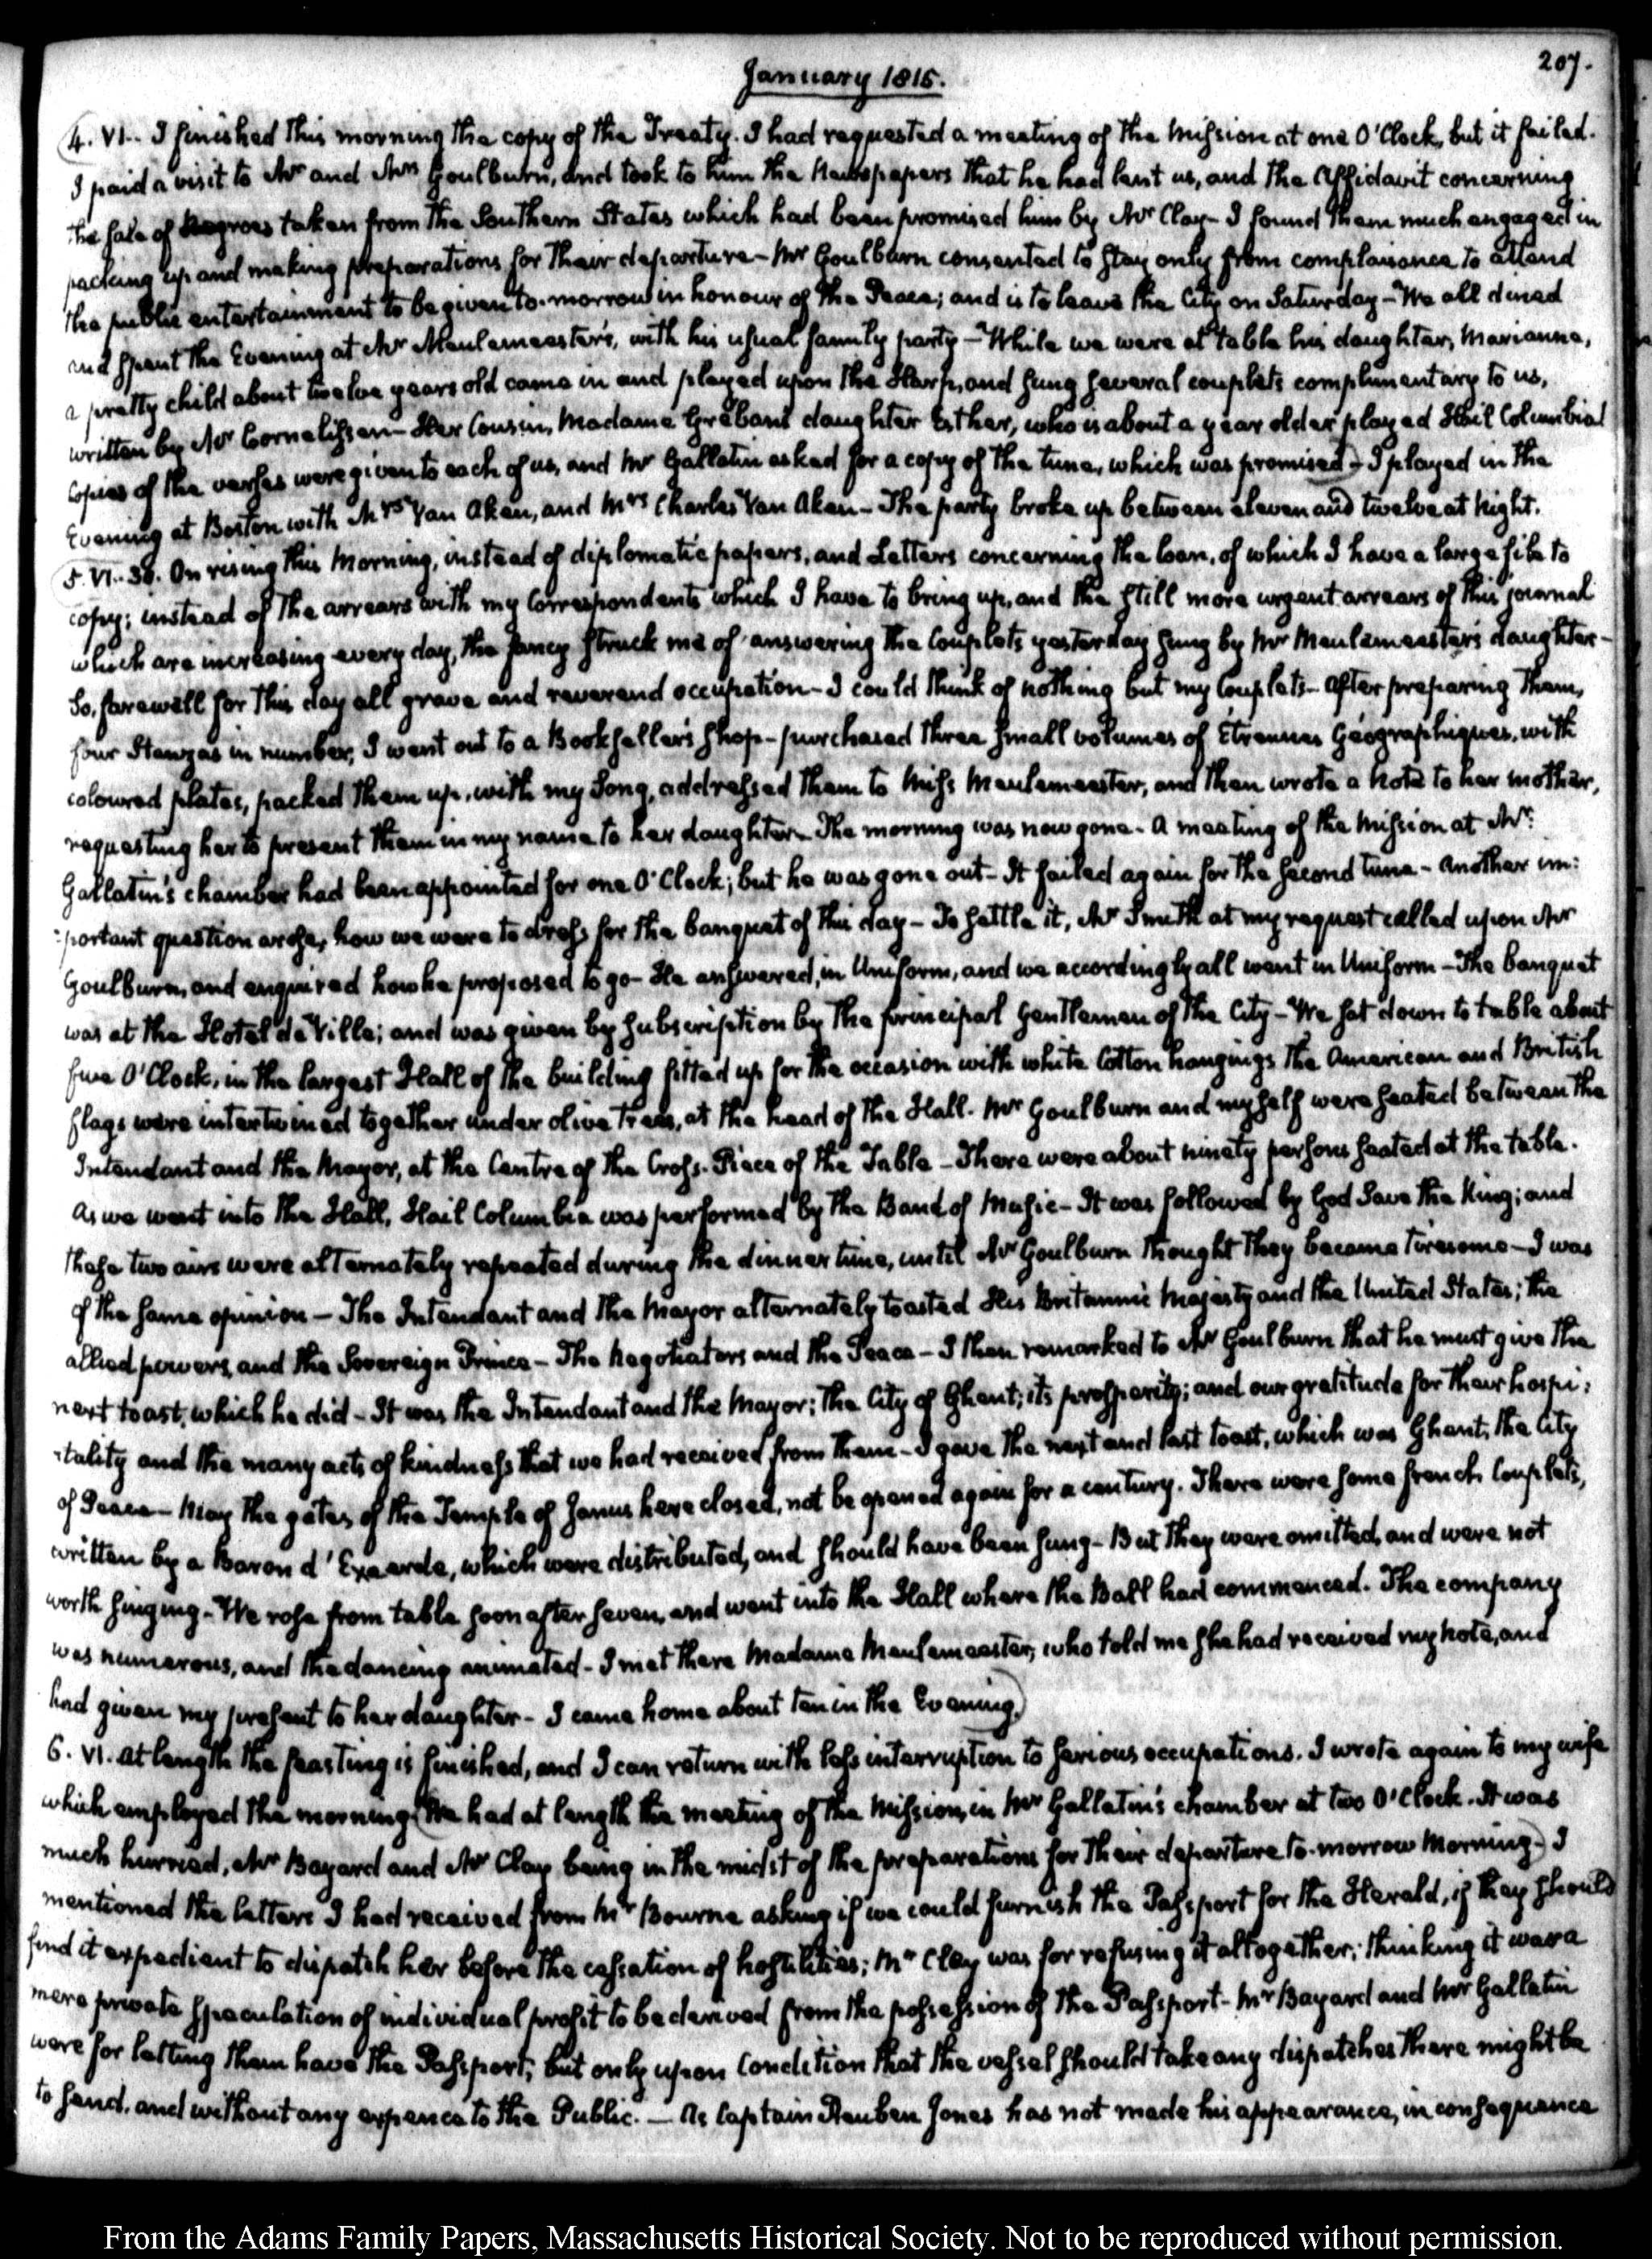 207.
January 1815.
4. VI.. I finished this morning the copy of the Treaty. I had requested a meeting of the Mission at one O'Clock, but it failed.
I paid a visit to Mr and Mrs Goulburn, and took to him the Newspapers that he had lent us, and the Affidavit concerning
the sale of Negroes taken from the Southern States which had been promised him by Mr Clay- I found them much engaged in
packing up and making preparations for their departure- Mr Goulburn consented to stay only from complaisance to attend
the public entertainment to be given to-morrow in honour of the Peace; and is to leave the City on Saturday- We all dined
and spent the Evening at Mr Meulemeester's, with his usual family party- While we were at table his daughter, Marianne,
a pretty child about twelve years old came in and played upon the Harp, and sung several couplets complimentary to us,
written by Mr Cornelissen- Her Cousin, Madame Greban's daughter Esther, who is about a year older played Hail Columbia!
Copies of the verses were given to each of us, and Mr Gallatin asked for a copy of the tune, which was promised- I played in the
Evening at Boston with Mrs Van Aken, and Mrs Charles Van Aken- The party broke up between eleven and twelve at Night.
5. VI.. 30. On rising this Morning, instead of diplomatic papers, and Letters concerning the loan, of which I have a large file to
copy; instead of the arrears with my Correspondents which I have to bring up, and the still more urgent arrears of this journal
which are increasing every day, the fancy struck me of answering the Couplets yesterday sung by Mr Meulemeester's daughter-
So, farewell for this day all grave and reverend occupation- I could think of nothing but my Couplets- After preparing them,
four Stanzas in number, I went out to a Bookseller's shop- purchased three small volumes of Etrennes Géographiques, with
coloured plates, packed them up, with my Song, addressed them to Miss Meulemeester, and then wrote a Note to her mother,
requesting her to present them in my name to her daughter- The morning was now gone- A meeting of the Mission at Mr
Gallatin's chamber had been appointed for one O'Clock; but he was gone out- It failed again for the second time- Another im:
:portant question arose, how we were to dress for the banquet of this day- To settle it, Mr Smith at my request called upon Mr
Goulburn, and enquired how he proposed to go- He answered, in Uniform, and we accordingly all went in Uniform- The banquet
was at the Hotel de Ville; and was given by subscription by the principal Gentlemen of the City- We sat down to table about
five O'Clock, in the largest Hall of the building fitted up for the occasion with white Cotton hangings. The American and British
flags were intertwined together under olive trees, at the head of the Hall. Mr Goulburn and myself were seated between the
Intendant and the Mayor, at the Centre of the Cross-Piece of the Table- There were about ninety persons seated at the table.
As we went into the Hall, Hail Columbia was performed by the Band of Music- It was followed by God Save the King; and
these two airs were alternately repeated during the dinner time, until Mr Goulburn thought they became tiresome- I was
of the same opinion- The Intendant and the Mayor alternately toasted His Britannic Majesty and the United States; the
allied powers, and the Sovereign Prince- The Negotiators and the Peace- I then remarked to Mr Goulburn that he must give the
next toast, which he did- It was the Intendant and the Mayor; The City of Ghent; its prosperity; and our gratitude for their hospi:
:tality and the many acts of kindness that we had received from them- I gave the next and last toast, which was Ghent, the City
of Peace- May the gates of the Temple of Janus here closed, not be opened again for a century. There were some french Couplets,
written by a Baron d'Exaerde, which were distributed, and should have been sung- But they were omitted, and were not
worth singing- We rose from table soon after seven, and went into the Hall where the Ball had commenced. The company
was numerous, and the dancing animated- I met there Madame Meulemeester, who told me she had received my note, and
had given my present to her daughter- I came home about ten in the Evening.
6. VI. At length the feasting is finished, and I can return with less interruption to serious occupations. I wrote again to my wife
which employed the morning. We had at length the meeting of the Mission, in Mr Gallatin's chamber at two O'Clock. It was
much hurried, Mr Bayard and Mr Clay being in the midst of the preparations for their departure to-morrow Morning- I
mentioned the letters I had received from Mr Bourne asking if we could furnish the Passport for the Herald, if they should
find it expedient to dispatch her before the cessation of hostilities; Mr Clay was for refusing it altogether; thinking it was a
mere private speculation of individual profit to be derived from the possession of the Passport- Mr Bayard and Mr Gallatin
were for letting them have the Passport; but only upon Condition that the vessel should take any dispatches there might be
to send, and without any expence to the Public.- As Captain Reuben Jones has not made his appearance, in consequence
From the Adams Family Papers, Massachusetts Historical Society. Not to be reproduced without permission.